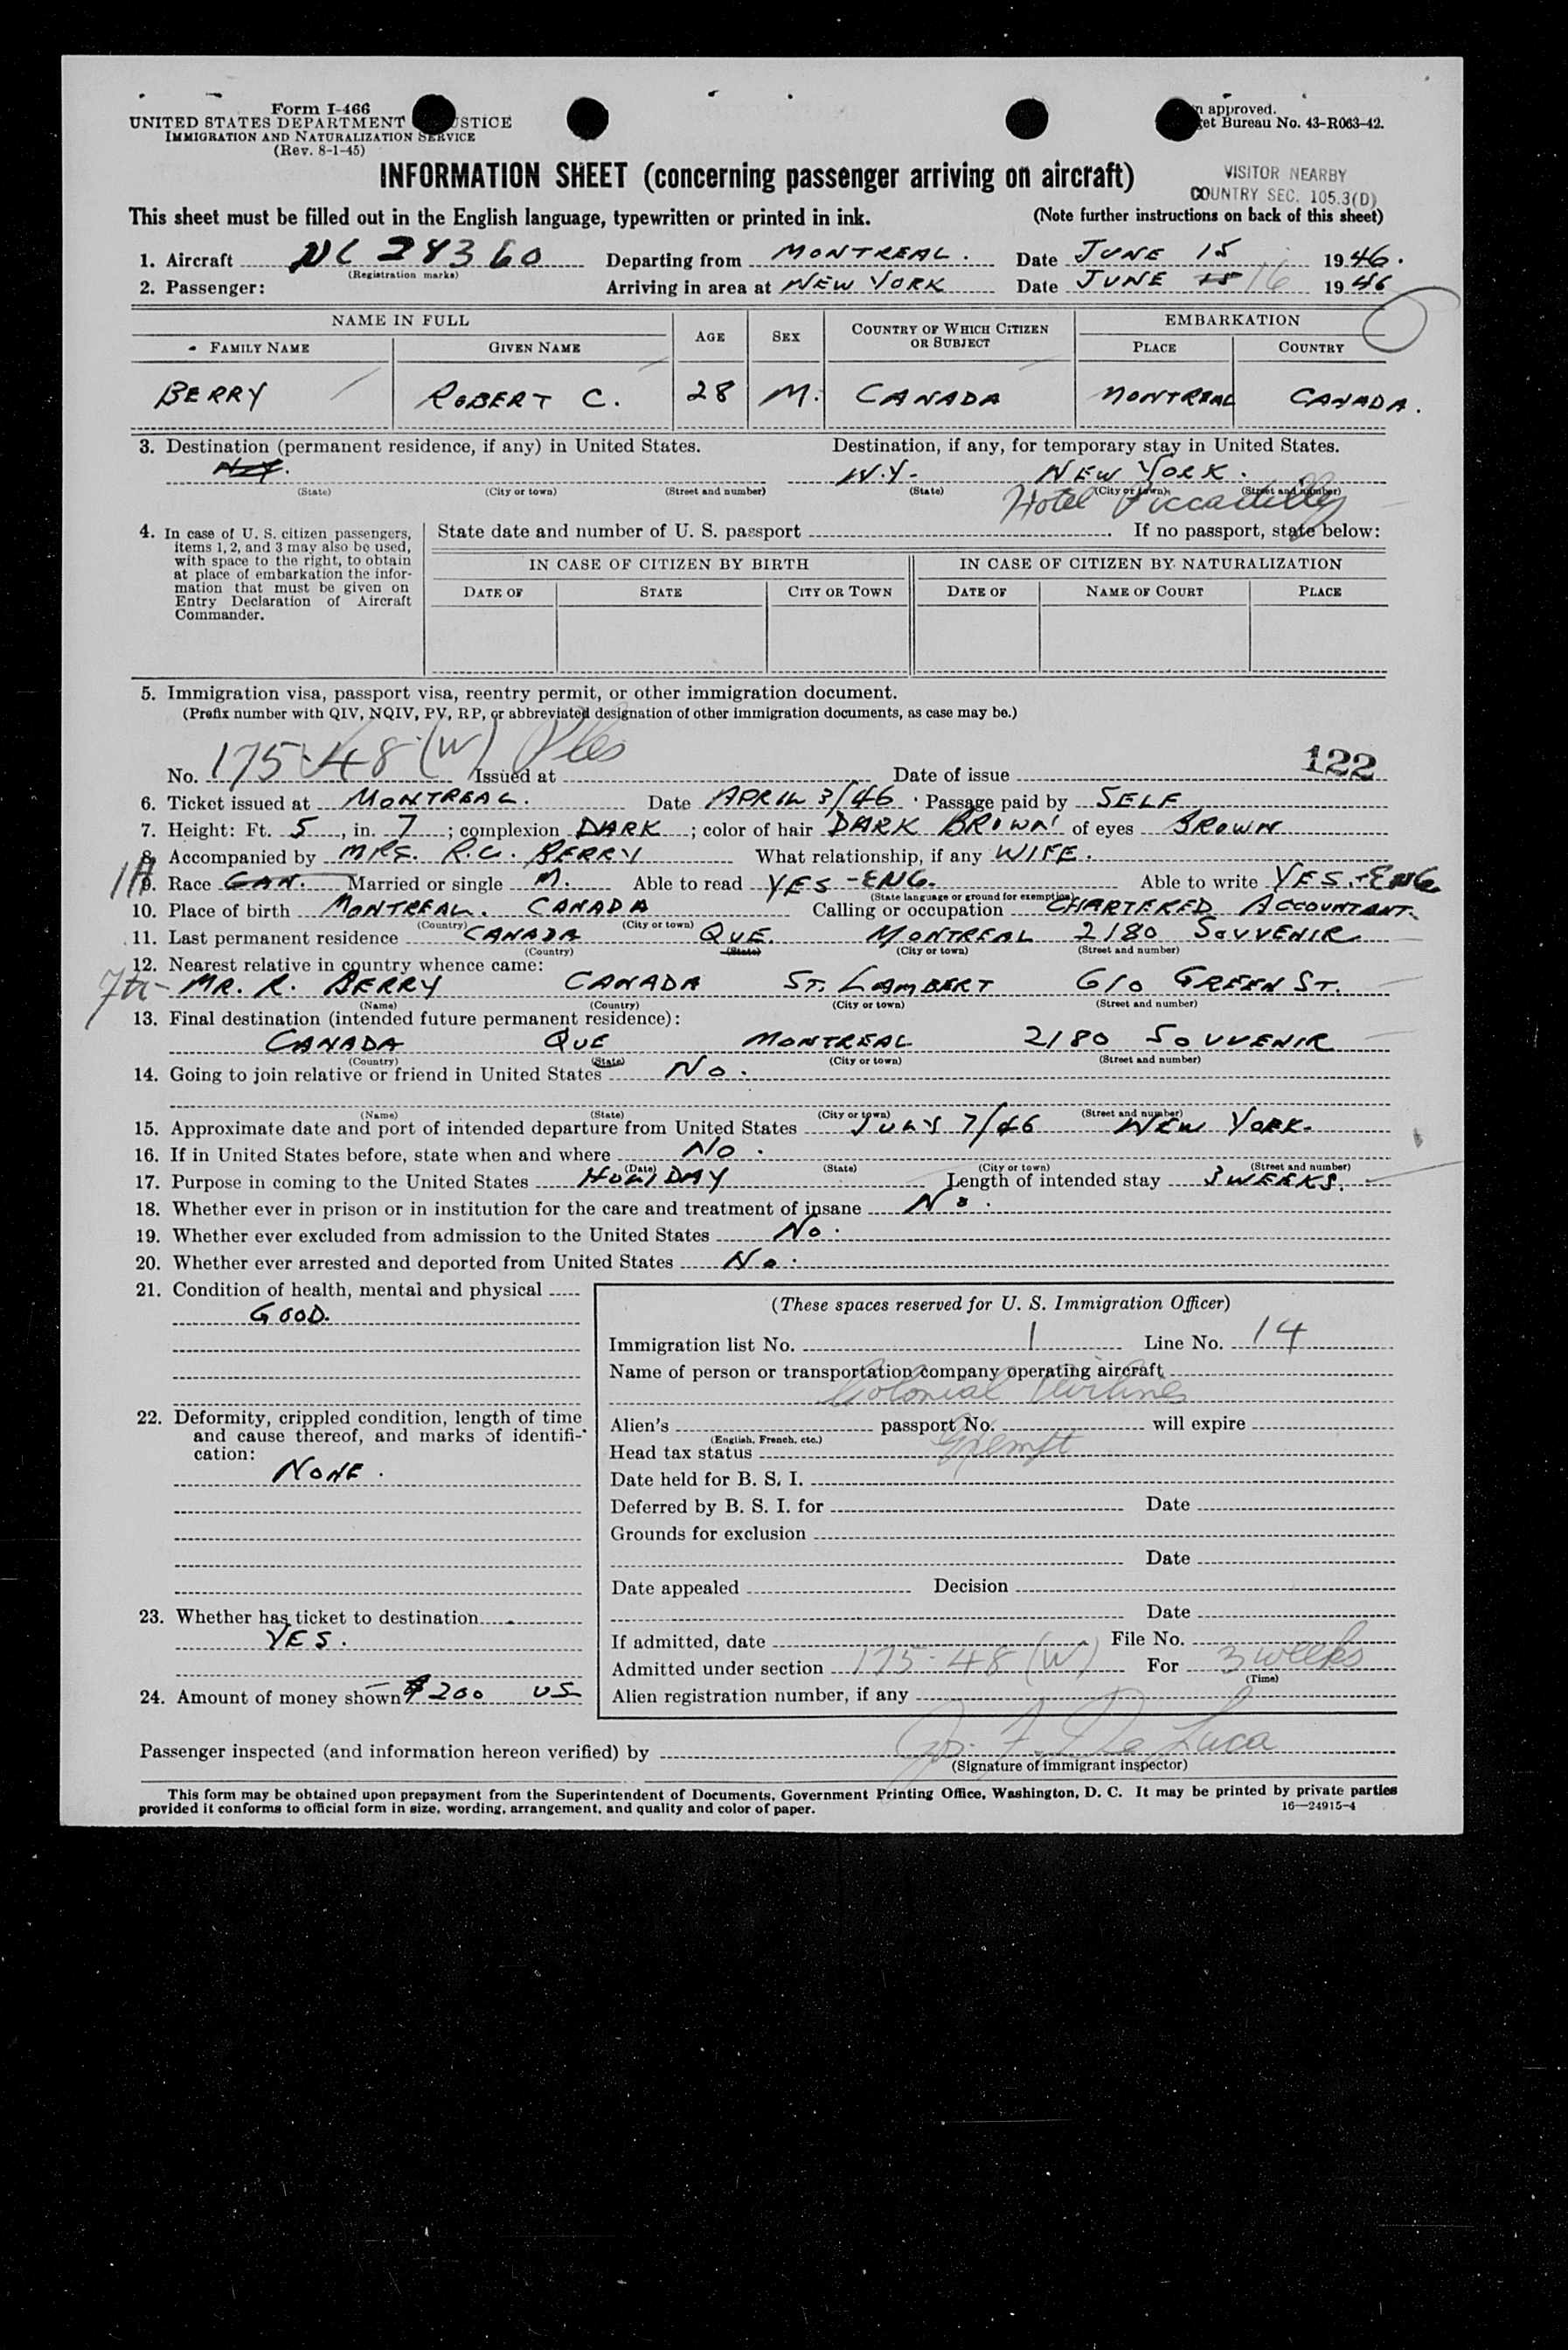 Form I-466
UNITED STATES DEPARTMENT STICE
IMMIGRATION AND NATURALIZATION SERVICE
(Rev. 8-1-45)
approved.
et Bureau No. 43-R063-42.
INFORMATION SHEET (concerning passenger arriving on aircraft)
VISITOR NEARBY
COUNTRY SEC. 105.3(D)
This sheet must be filled out in the English language, typewritten or printed in ink. (Note further instructions on back of this sheet)
1. Aircraft NC 28360 Departing from MONTREAL. Date JUNE 15 1946.
(Registration marks)
2. Passenger: Arriving in area at NEW YORK Date JUNE 15 16 1946
NAME IN FULL AGE SEX COUNTRY OF WHICH CITIZEN OR SUBJECT EMBARKATION
FAMILY NAME GIVEN NAME PLACE COUNTRY
BERRY ROBERT C. 28 M. CANADA MONTREAL CANADA.
3. Destination (permanent residence, if any) in United States. Destination, if any, for temporary stay in United States.
N.Y. N.Y. NEW YORK.
(State) (City or town) (Street and number) (State) (City or town) (Street and number)
Hotel Piccadilly
4. In case of U. S. citizen passengers, items 1, 2, and 3 may also be used, with space to the right, to obtain at place of embarkation the information that must be given on Entry Declaration of Aircraft Commander.
State date and number of U. S. passport If no passport, state below:
IN CASE OF CITIZEN BY BIRTH IN CASE OF CITIZEN BY NATURALIZATION
DATE OF STATE CITY OR TOWN DATE OF NAME OF COURT PLACE
5. Immigration visa, passport visa, reentry permit, or other immigration document.
(Prefix number with QIV, NQIV, PV, RP, or abbreviated designation of other immigration documents, as case may be.)
No. 175.48 (W) Issued at Date of issue 122
6. Ticket issued at MONTREAL. Date APRIL 3/46 Passage paid by SELF
7. Height: Ft. 5, in. 7; complexion DARK; color of hair DARK BROWN of eyes BROWN
8. Accompanied by MRS. R.C. BERRY What relationship, if any WIFE.
9. Race CAN. Married or single M. Able to read YES - ENG. Able to write YES. - ENG
(State language or ground for exemption)
10. Place of birth MONTREAL. CANADA Calling or occupation CHARTERED ACCOUNTANT.
(Country) (City or town)
11. Last permanent residence CANADA QUE. MONTREAL 2180 SOUVENIR
(Country) (State) (City or town) (Street and number)
12. Nearest relative in country whence came:
MR. R. BERRY CANADA ST. LAMBERT 610 GREEN ST.
(Name) (Country) (City or town) (Street and number)
13. Final destination (intended future permanent residence):
CANADA QUE MONTREAL 2180 SOUVENIR
(Country) (State) (City or town) (Street and number)
14. Going to join relative or friend in United States No.
(Name) (State) (City or town) (Street and number)
15. Approximate date and port of intended departure from United States JULY 7/46 NEW YORK.
16. If in United States before, state when and where NO.
(Date) (State) (City or town) (Street and number)
17. Purpose in coming to the United States HOLIDAY Length of intended stay 3 WEEKS.
18. Whether ever in prison or in institution for the care and treatment of insane No.
19. Whether ever excluded from admission to the United States No.
20. Whether ever arrested and deported from United States No.
21. Condition of health, mental and physical
GOOD.
22. Deformity, crippled condition, length of time and cause thereof, and marks of identification:
NONE.
23. Whether has ticket to destination
YES.
24. Amount of money shown $200 US
(These spaces reserved for U. S. Immigration Officer)
Immigration list No. 1 Line No. 14
Name of person or transportation company operating aircraft
Colonial Airlines
Alien's passport No. will expire
(English, French, etc.)
Head tax status Exempt
Date held for B. S. I.
Deferred by B. S. I. for Date
Grounds for exclusion
Date
Date appealed Decision
Date
If admitted, date File No.
Admitted under section 175.48 (W) For 3 weeks
(Time)
Alien registration number, if any
Passenger inspected (and information hereon verified) by Jos. F. De Luca
(Signature of immigrant inspector)
This form may be obtained upon prepayment from the Superintendent of Documents, Government Printing Office, Washington, D. C. It may be printed by private parties
provided it conforms to official form in size, wording, arrangement, and quality and color of paper. 16—24915-4